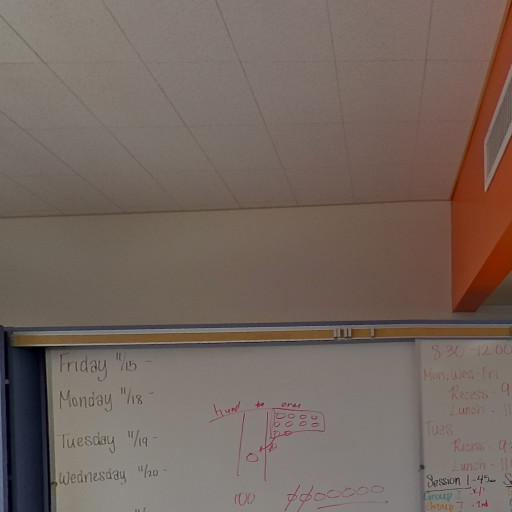 Friday 11/15 -
Monday 11/18 -
Tuesday 11/19 -
Wednesday 11/20 -
hund to ones
100
8:30 - 12:00
Mon, Wed - Fri
Recess - 9
Lunch - 11
Tues
Recess - 9
Lunch - 11
Session 1 - 45
Group
Group 7